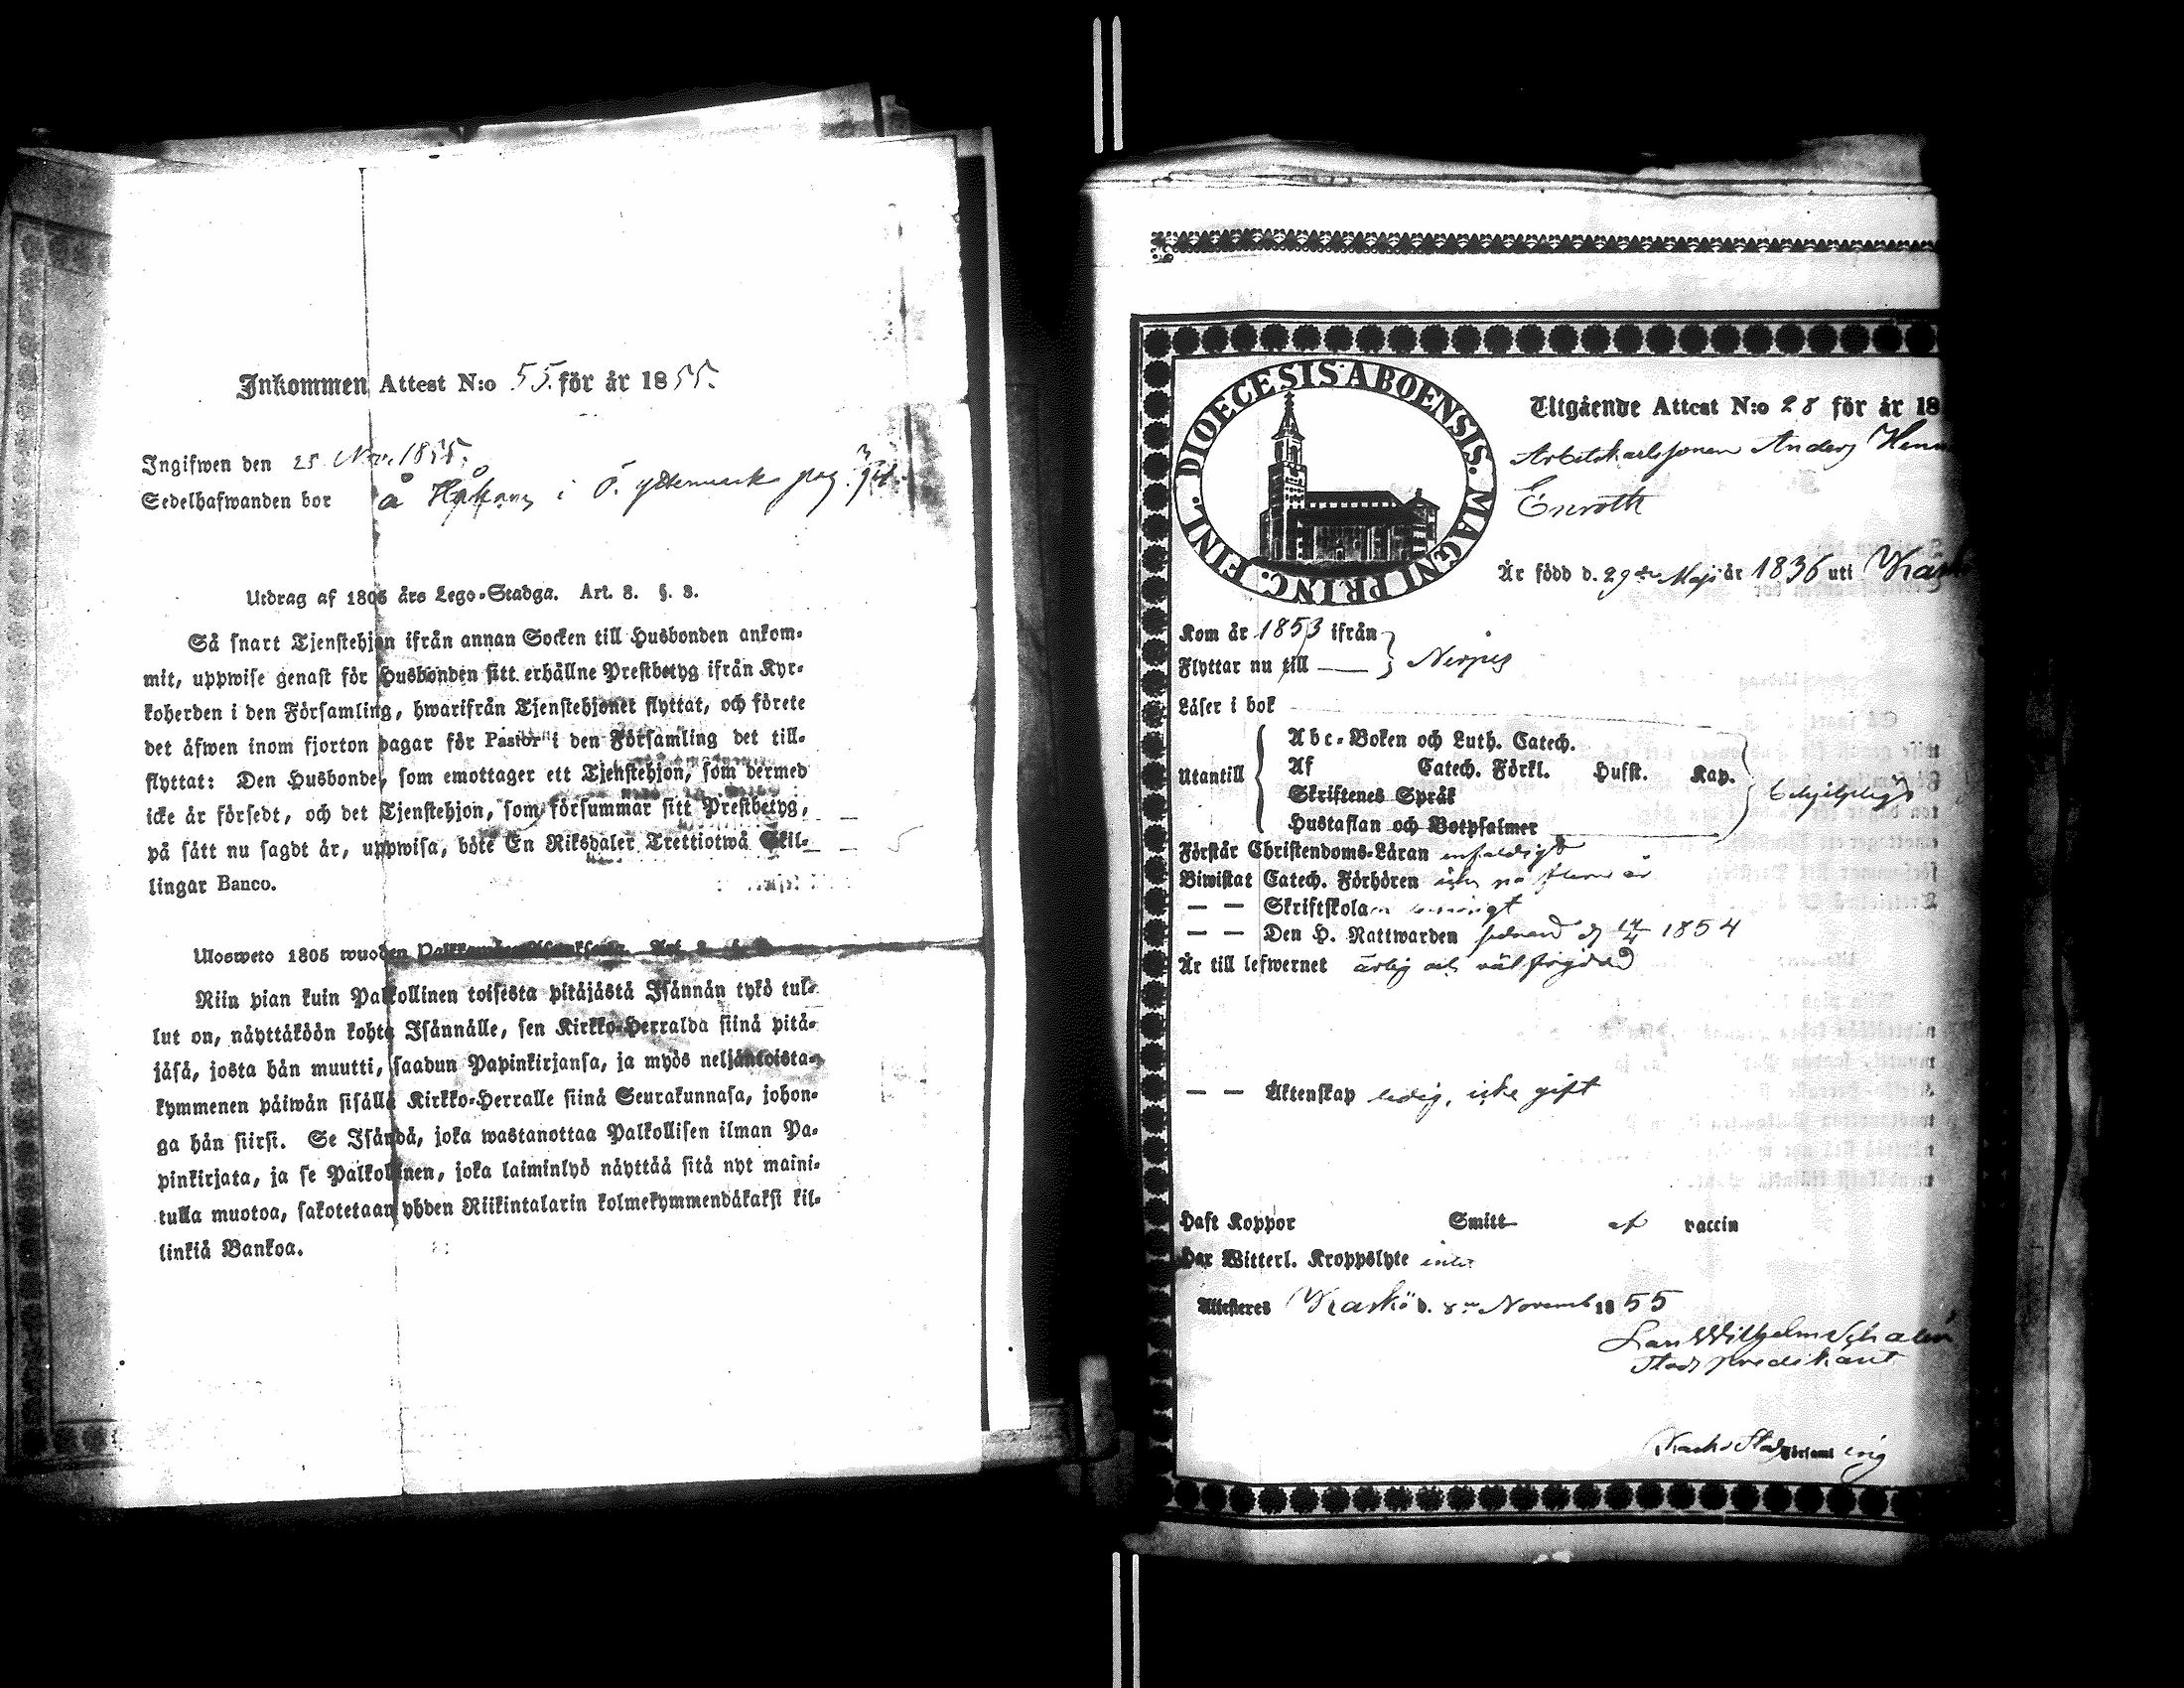 Inkommen Attest N:o 55. för år 1855.
Ingifwen den 25 Nov. 1855.
Sedelhafwanden bor å Håkans i Ö. Yttermark
Utdrag af 1805 års Lego-Stadga. Art. 8. §. 3.
Så snart Tjenstehjon ifrån annan Socken till Husbonden ankom-
mit, uppwise genast för Husbonden sitt erhållne Prestbetyg ifrån Kyr-
koherden i den Församling, hwarifrån Tjenstehjonet flyttat, och förete
det äfwen inom fjorton dagar för Pastor i den Församling det till-
flyttat: Den Husbonde, som emottager ett Tjenstehjon, som dermed
icke är försedt, och det Tjenstehjon, som försummar sitt Prestbetyg,
på sätt nu sagdt är, uppwisa, böte En Riksdaler Trettiotwå Skil-
lingar Banco.
Ulosweto 1805 wuoden
Niin pian kuin Palkollinen toisesta pitäjästä Isännän tykö tul-
lut on, näyttäköön kohta Isännälle, sen Kirkko-Herralda siinä pitä-
jäsä, josta hän muutti, saadun Papinkirjansa, ja myös neljäntoista-
kymmenen päiwän sisällä Kirkko-Herralle siinä Seurakunnasa, johon-
ga hän siirsi. Se Isändä, joka wastanottaa Palkollisen ilman Pa-
pinkirjata, ja se Palkollinen, joka laiminlyö näyttää sitä nyt maini-
tulla muotoa, sakotetaan yhden Riikintalarin kolmekymmendäkaksi kil-
linkiä Bankoa.
DIOECESIS ABOENSIS. MAGNI PRINC. FINL.
Utgående Attest N:o 28 för år 18
Arbetskarlssonen Anders Henr
Enroth
Är född d. 29de Maji år 1836 uti Kask
Kom år 1853 ifrån
Flyttar nu till — } Nerpes
Läser i bok
Abc-Boken och Luth. Catech.
Utantill { Af Catech. Förkl. Hufst. Kap. }
Skriftenes Språk
Hustaflan och Botpsalmer
Förstår Christendoms-Läran enfaldigt
Biwistat Catech. Förhören icke på flere år
— — Skriftskolan
— — Den H. Nattwarden sednast d 14/4 1854
Är till lefwernet ärlig och väl frejdad
— — Äktenskap ledig, icke gift
Haft Koppor Smitt af vaccin
Har Witterl. Kroppslyte intet
Attesteres Kaskö d. 8de Novemb 1855
Lars Wilhelm
Stads predikant
Kaskö Stads Församl ing